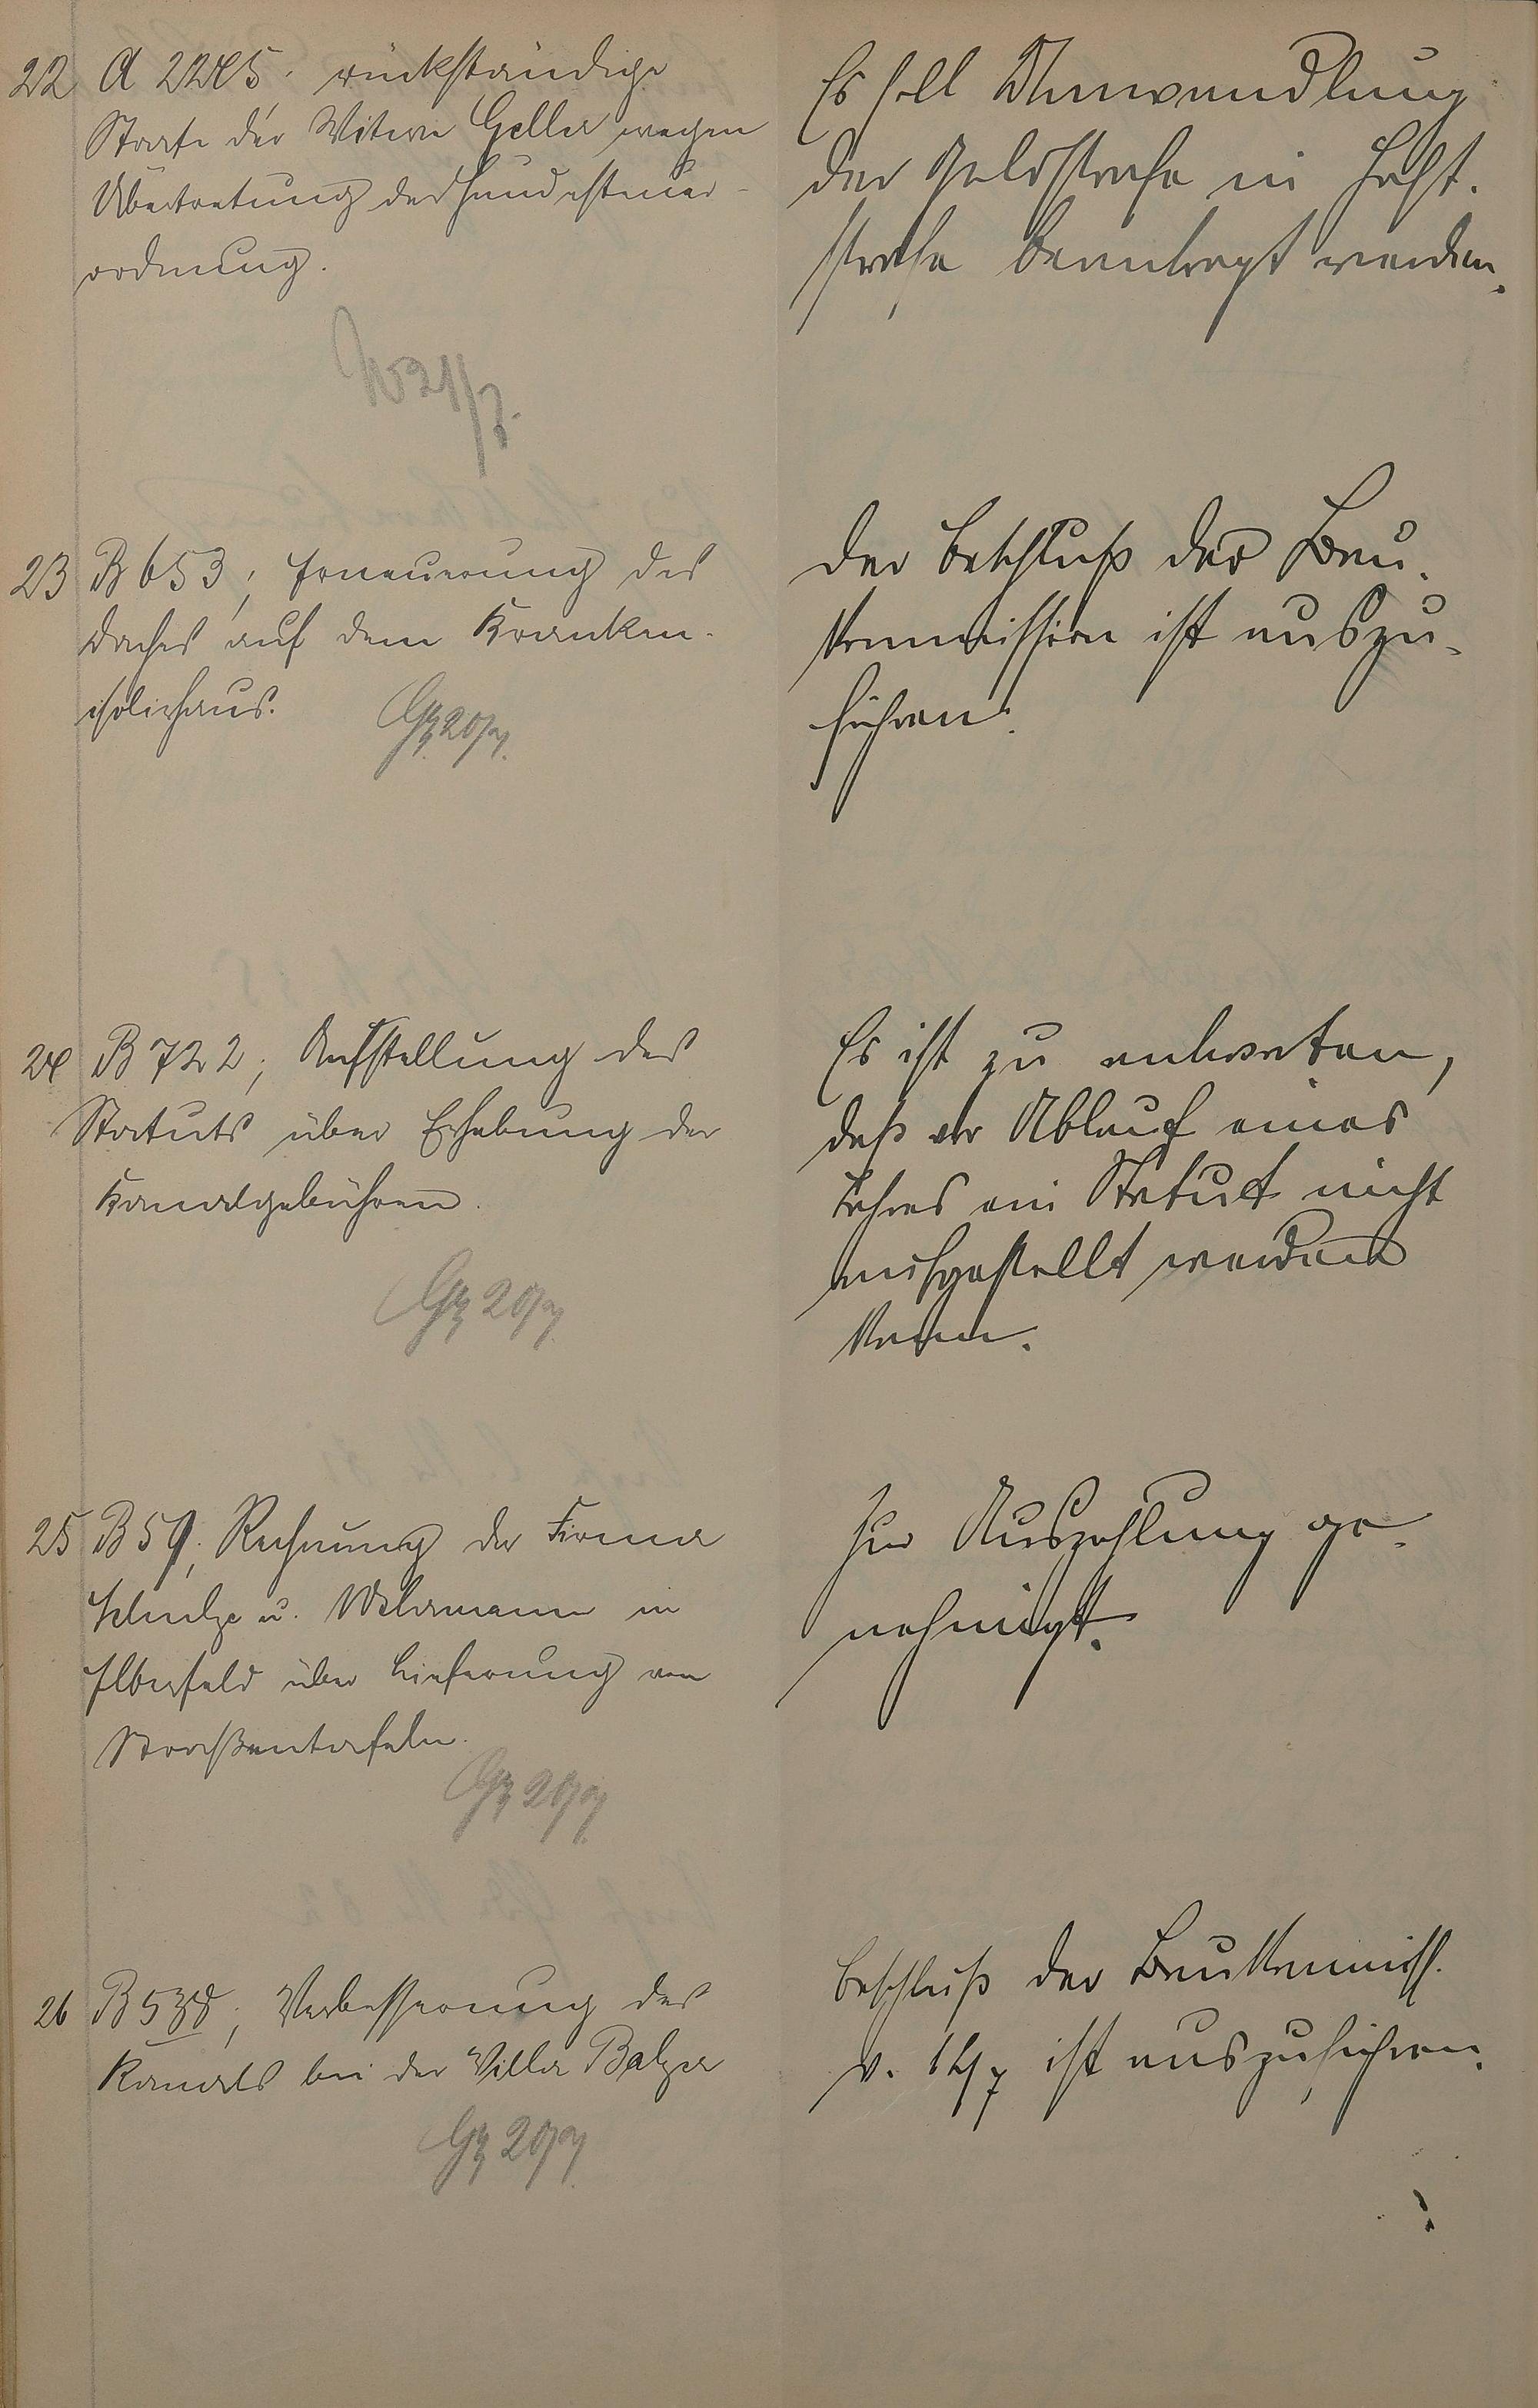 22 A 2245; rückständige
Strafe der Witwe Geller wegen
Übertretung der Hundesteuer-
ordnung.
Es soll Umwandlung
der Geldstrafe in Haft-
strafe beantragt werden.
23 B 653; Erneuerung des
Daches auf dem Kranken-
isolierhaus.
Gz 20/7.
Der Beschluß der Bau-
kommission ist auszu-
führen.
24 B 722; Aufstellung des
Statuts über Erhebung der
Kanalgebühren.
Gz 20/7
Es ist zu antworten,
daß vor Ablauf eines
Jahres ein Statut nicht
aufgestellt werden
kann.
25 B 59; Rechnung der Firma
Schulze u. Wehrmann in
Elberfeld über Lieferung von
Straßentafeln.
Gz 20/7
Zur Auszahlung ge-
nehmigt.
26 B 538; Verbesserung des
Kanals bei der Villa Balzer
Gz 20/7
Beschluß der Baukommiss.
v. 14/7 ist auszuführen.